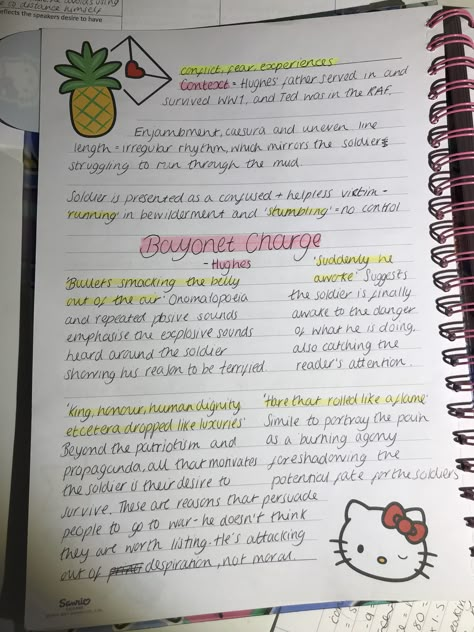 to distance himself
reflects the speakers desire to have
conflict, fear, experiences
Context = Hughes' father served in and
survived WW1, and Ted was in the RAF.
Enjambment, caesura and uneven line
length = irregular rhythm, which mirrors the soldiers
struggling to run through the mud.
Soldier is presented as a confused + helpless victim -
'running' in bewilderment and 'stumbling' = no control
Bayonet Charge
- Hughes
'Bullets smacking the belly
out of the air' Onomatopoeia
and repeated plosive sounds
emphasise the explosive sounds
heard around the soldier
showing his reason to be terrified.
'Suddenly he
awoke' Suggests
the soldier is finally
awake to the danger
of what he is doing,
also catching the
reader's attention.
'King, honour, human dignity
etcetera dropped like luxuries'
Beyond the patriotism and
propaganda, all that motivates
the soldier is their desire to
survive. These are reasons that persuade
people to go to war - he doesn't think
they are worth listing. He's attacking
out of despiration, not moral.
'Hare that rolled like a flame'
Simile to portray the pain
as a burning agony
foreshadowing the
potential fate for the soldiers
Sanrio